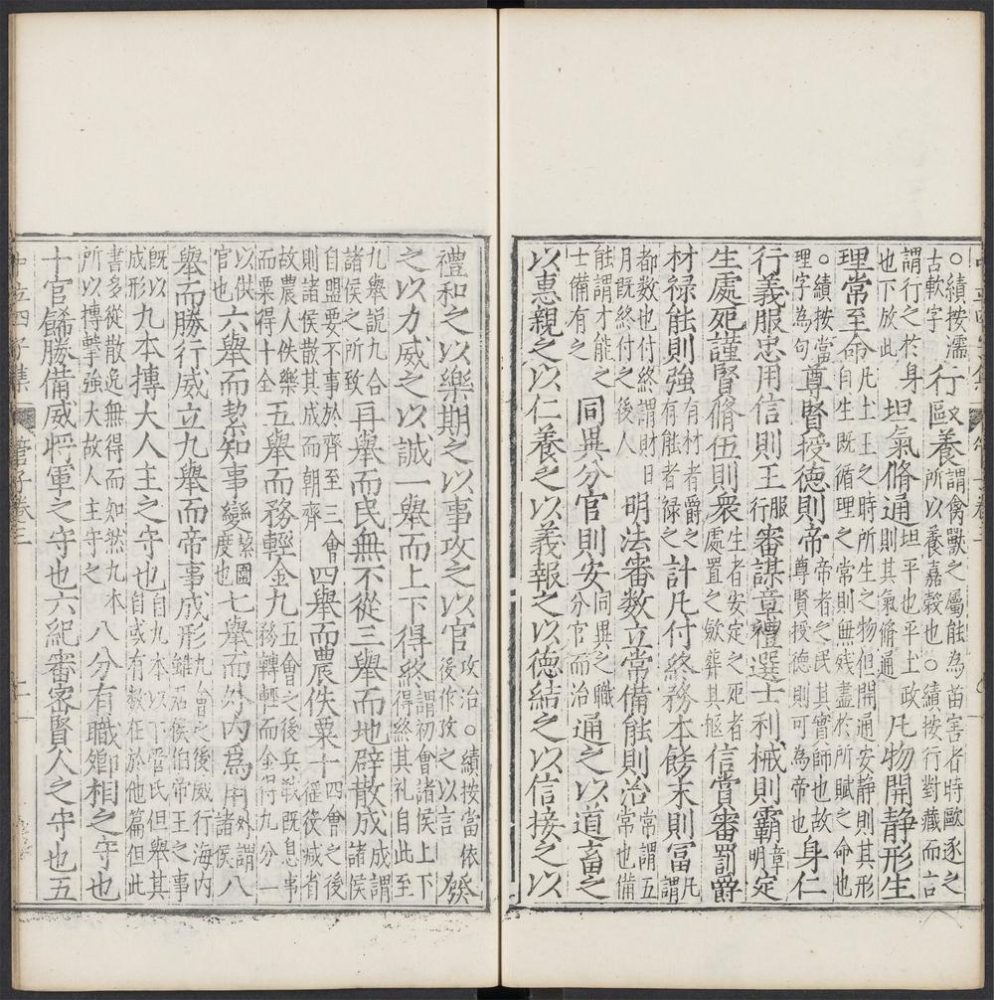 ○績按濡古軟字行歐養謂禽獸之屬能為苗害者時歐逐之所以養嘉穀也○績按行對藏而言
謂行之於身也下放此坦氣脩通坦平也平土政則其氣脩通凡物開静形生
理常至命凡土王之時所生之物但開通安静則其形自生既循理之常則無殘盡於所賦之命也
○績按當理字為句尊賢授德則帝帝者之民其實師也故尊賢授德則可為帝也身仁
行義服忠用信則王服行審謀章禮選士利械則霸章明定
生處死謹賢脩伍則衆生者安定之死者處置之斂葬其柩信賞審罰爵
材禄能則強有材者爵之有能者禄之計凡付終務本餝末則富凡謂
都数也付終謂財日月既終付之後人明法審数立常備能則治常謂五常也備
能謂才能之士備有之同異分官則安同異之職分官而治通之以道畜之
以惠親之以仁養之以義報之以德結之以信接之以
禮和之以樂期之以事攻之以官攻治○績按當依後作攻之以言發
之以力威之以誠一舉而上下得終謂初會諸侯上下得終其礼自此至
九舉説九合諸侯之所致再舉而民無不從三舉而地辟散成成謂諸侯
自盟要不事於齊至三會則諸侯散其成而朝齊四舉而農佚粟十四會之後徭役减省
故農人佚樂而粟得十全五舉而務輕金九五會之後兵戰既息事務轉輕而金得九分一
以供官也六舉而絜知事變絜圍度也七舉而外内為用外謂諸侯八
舉而勝行威立九舉而帝事成形九會之後威行海内雖居侯伯帝王之事
既以成形九本搏大人主之守也自九本以下管氏但舉其自或有數在於他篇但此
書多從散逸無得而知然九本所以搏擊強大故人主守之八分有職卿相之守也
十官餙勝備威将軍之守也六紀審密賢人之守也五